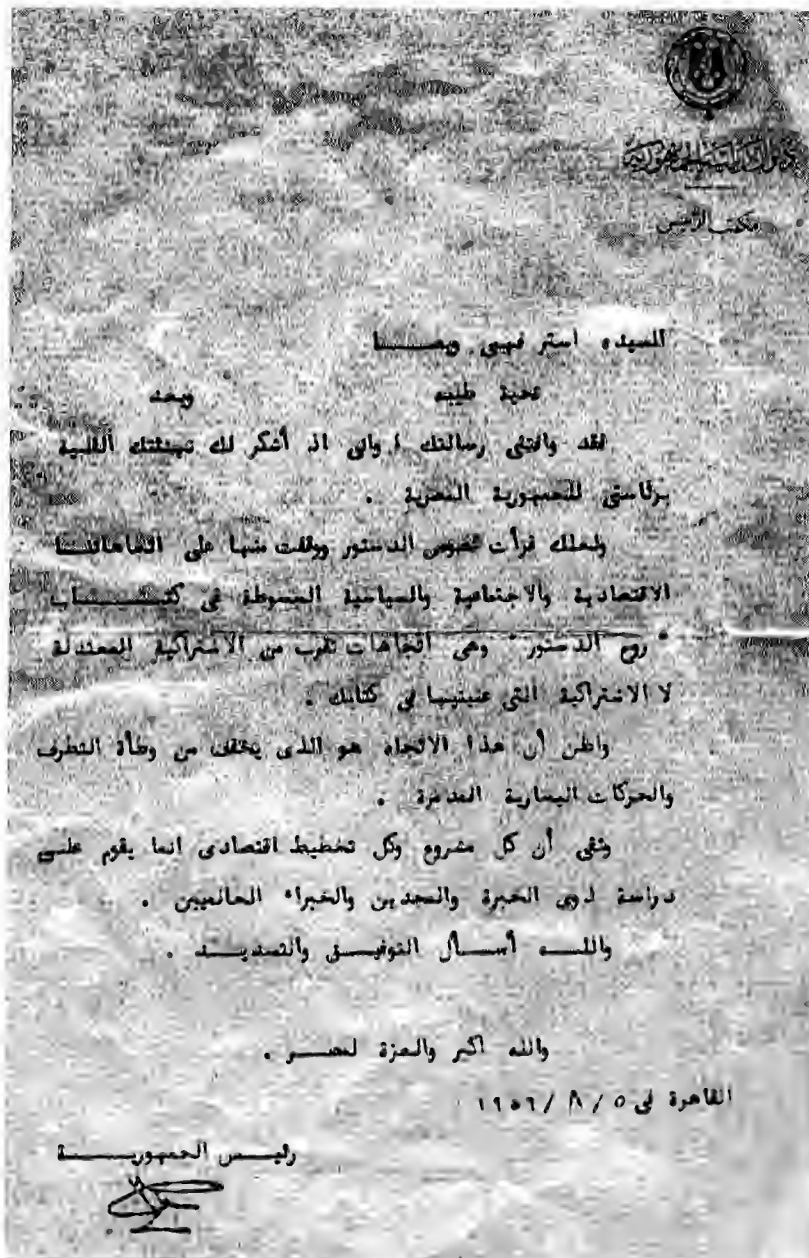 مكتب الرئيس
السيده استر فهمى ويصــــا
تحية طيبه وبعد
فقد وافتنى رسالتك وانى اذ أشكر لك تهنئتك القلبية
برئاستى للجمهورية المصرية .
ولعلك قرأت نصوص الدستور ووقفت منها على اتجاهاتنــا
الاقتصادية والاجتماعية والسياسية المبسوطة فى كتــــــاب
" روح الدستور " وهى اتجاهات تقرب من الاشتراكية المعتدلة
لا الاشتراكية التى عنيتيها فى كتابك .
واظن أن هذا الاتجاه هو الذى يخفف من وطأة التطرف
والحركات اليسارية المدمرة .
وثقى أن كل مشروع وكل تخطيط اقتصادى انما يقوم علـى
دراسة لذوى الخبرة والمجدين والخبراء العالميين .
واللــه أســـأل التوفيـــق والتسديـــد .
والله اكبر والعزة لمصـــر .
القاهرة فى ٥ / ٨ / ١٩٥٦
رئيـــس الجمهوريـــــة